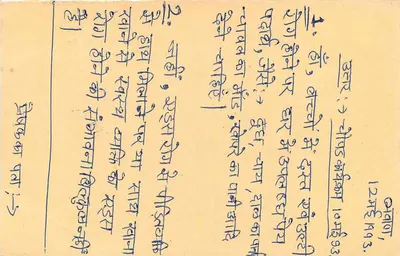 जावाणा,
12 मई 193.
उत्तर :→ चौपड कार्यक्रम, 10 मई 93
1: हाँ, बच्चों में दस्त एवं उल्टी
रोग होने पर घर में उपलब्ध पेय
पदार्थ, जैसे :→ दूध, चाय, दाल का पानी
चावल का मांड, नारियल का पानी आदि
देने चाहिये।
2: नहीं, एड्स रोग से पीड़ित व्यक्ति
से हाथ मिलाने पर या साथ खाना
खाने से स्वस्थ व्यक्ति के एड्स
रोग होने की संभावना बिल्कुल नहीं
है।
प्रेषक का पता :→